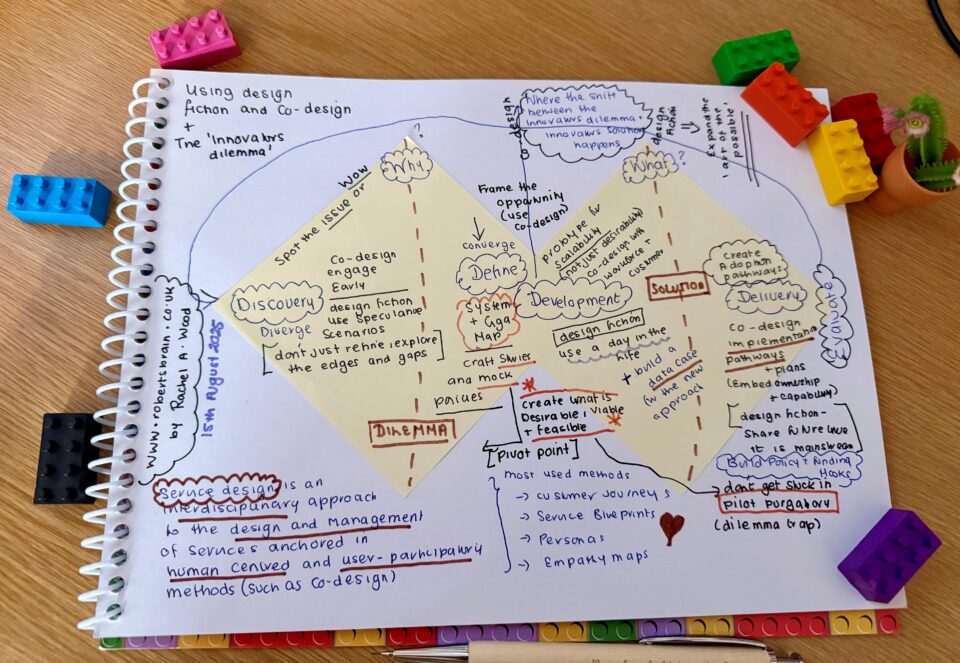 Using design
fiction and Co-design
+
The 'Innovators
dilemma'
Where the shift
between the
innovators dilemma +
innovators solution
happens
co-design
design
fiction
Expand the
art of the
possible
?
Why
What?
Spot the issue or
wow
Frame the
opportunity
(use
co-design)
converge
Define
System
+ Giga
Map
craft stories
and mock
policies
Discovery
Diverge
Co-design
engage
Early
design fiction
use speculative
scenarios
[don't just refine, explore
the edges and gaps]
DILEMMA
prototype for
scalability
(not just desirability)
co-design with
workforce +
customer
Development
design fiction
use a day in the
life
+ build a
data case
(for the new
approach)
SOLUTION
Create
Adoption
pathways
Delivery
co-design
implementation
pathways
+ plans
(Embed ownership
+ capability)
design fiction-
share future like
it is mainstream
Build Policy + Funding
Hooks
don't get stuck in
pilot purgatory
(dilemma trap)
Evaluate
create what is
desirable, viable
+ feasible
[pivot point]
www.robertsbrain.co.uk
by Rachel A. Wood
15th August 2025
Service design is an
interdisciplinary approach
to the design and management
of services anchored in
human centred and user-participatory
methods (such as co-design)
most used methods
→ customer Journeys
→ Service Blueprints
→ Personas
→ Empathy maps